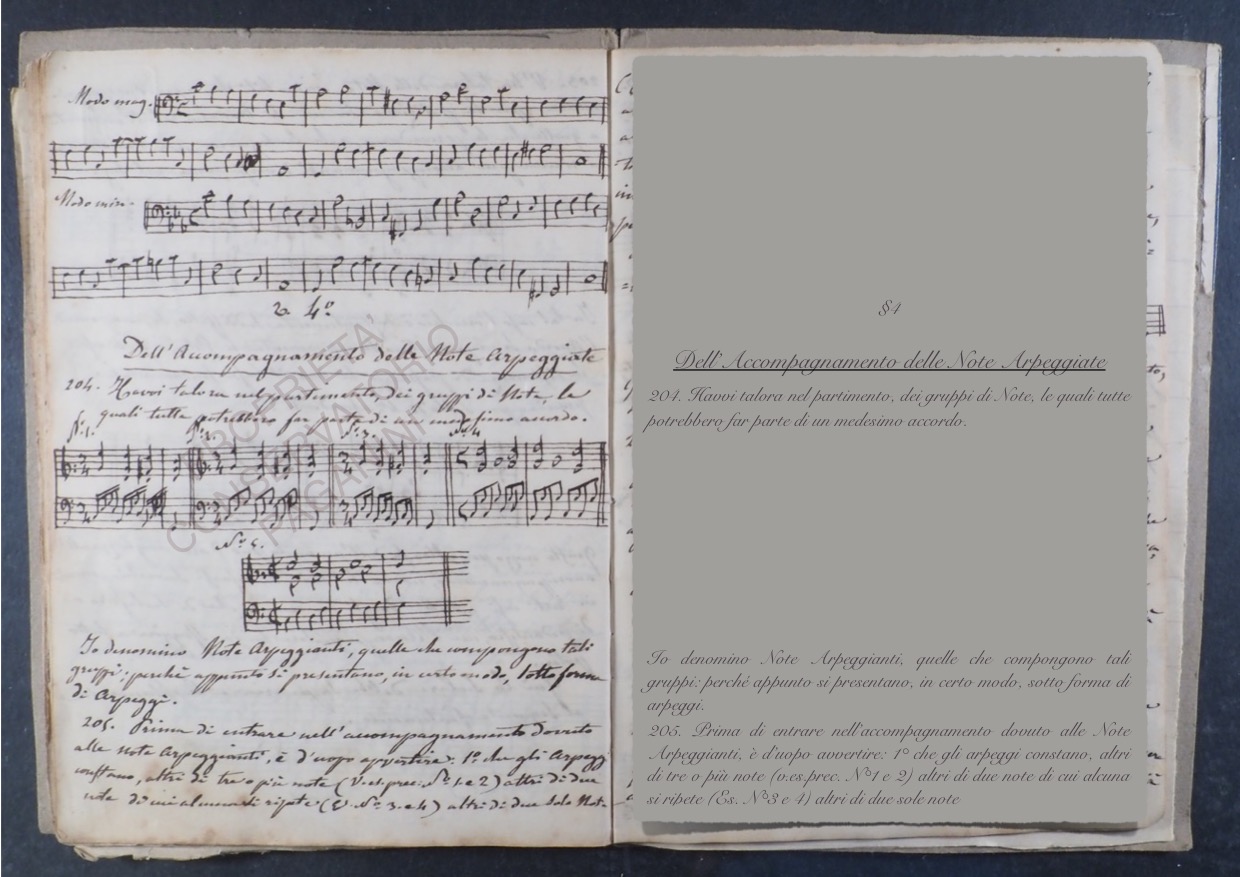 Modo mag.
Modo min.
§ 4º
Dell'Accompagnamento delle Note Arpeggiate
204. Havvi talora nel partimento, dei gruppi di Note, le
quali tutte potrebbero far parte di un medesimo accordo.
Nº1. Nº2. Nº3. Nº4
Nº 5.
Io denomino Note Arpeggianti, quelle che compongono tali
gruppi; perchè appunto si presentano, in certo modo, sotto forma
di Arpeggi.
205. Prima di entrare nell'accompagnamento dovuto
alle note Arpeggianti, è d'uopo avvertire: 1º che gli Arpeggi
constano, altri di tre o più note (V. es. prec. Nº 1. e 2) altri di due
note di cui alcuna si ripete (V. Nº 3. e 4) altri di due sole Not.
PROPRIETÀ
CONSERVATORIO
PAGANINI
§4
Dell'Accompagnamento delle Note Arpeggiate
204. Havvi talora nel partimento, dei gruppi di Note, le quali tutte
potrebbero far parte di un medesimo accordo.
Io denomino Note Arpeggianti, quelle che compongono tali
gruppi: perché appunto si presentano, in certo modo, sotto forma di
arpeggi.
205. Prima di entrare nell'accompagnamento dovuto alle Note
Arpeggianti, è d'uopo avvertire: 1° che gli arpeggi constano, altri
di tre o più note (v.es.prec. N°1 e 2) altri di due note di cui alcuna
si ripete (Es. N°3 e 4) altri di due sole note